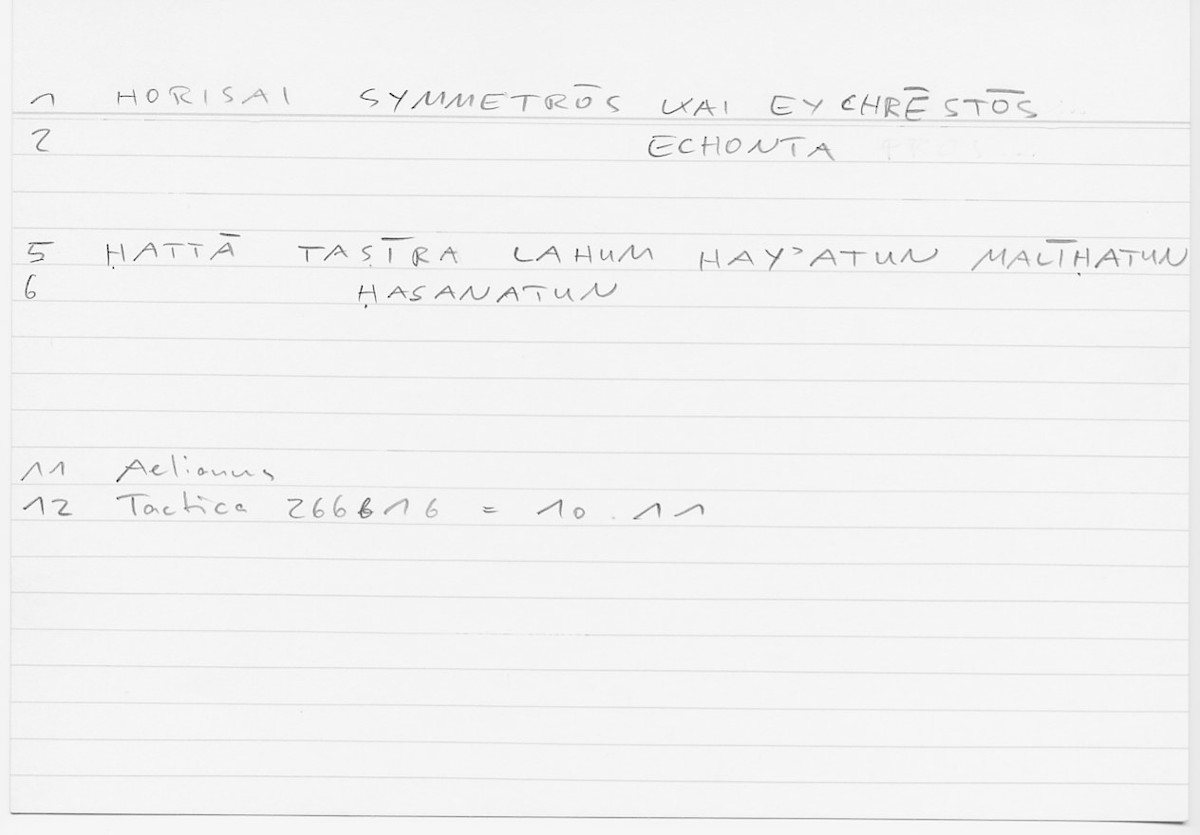 1 HORISAI SYMMETRŌS KAI EYCHRĒSTŌS
2 ECHONTA
5 ḤATTĀ TAṢĪRA LAHUM HAYʾATUN MALĪḤATUN
6 ḤASANATUN
11 Aelianus
12 Tactica 266616 = 10.11